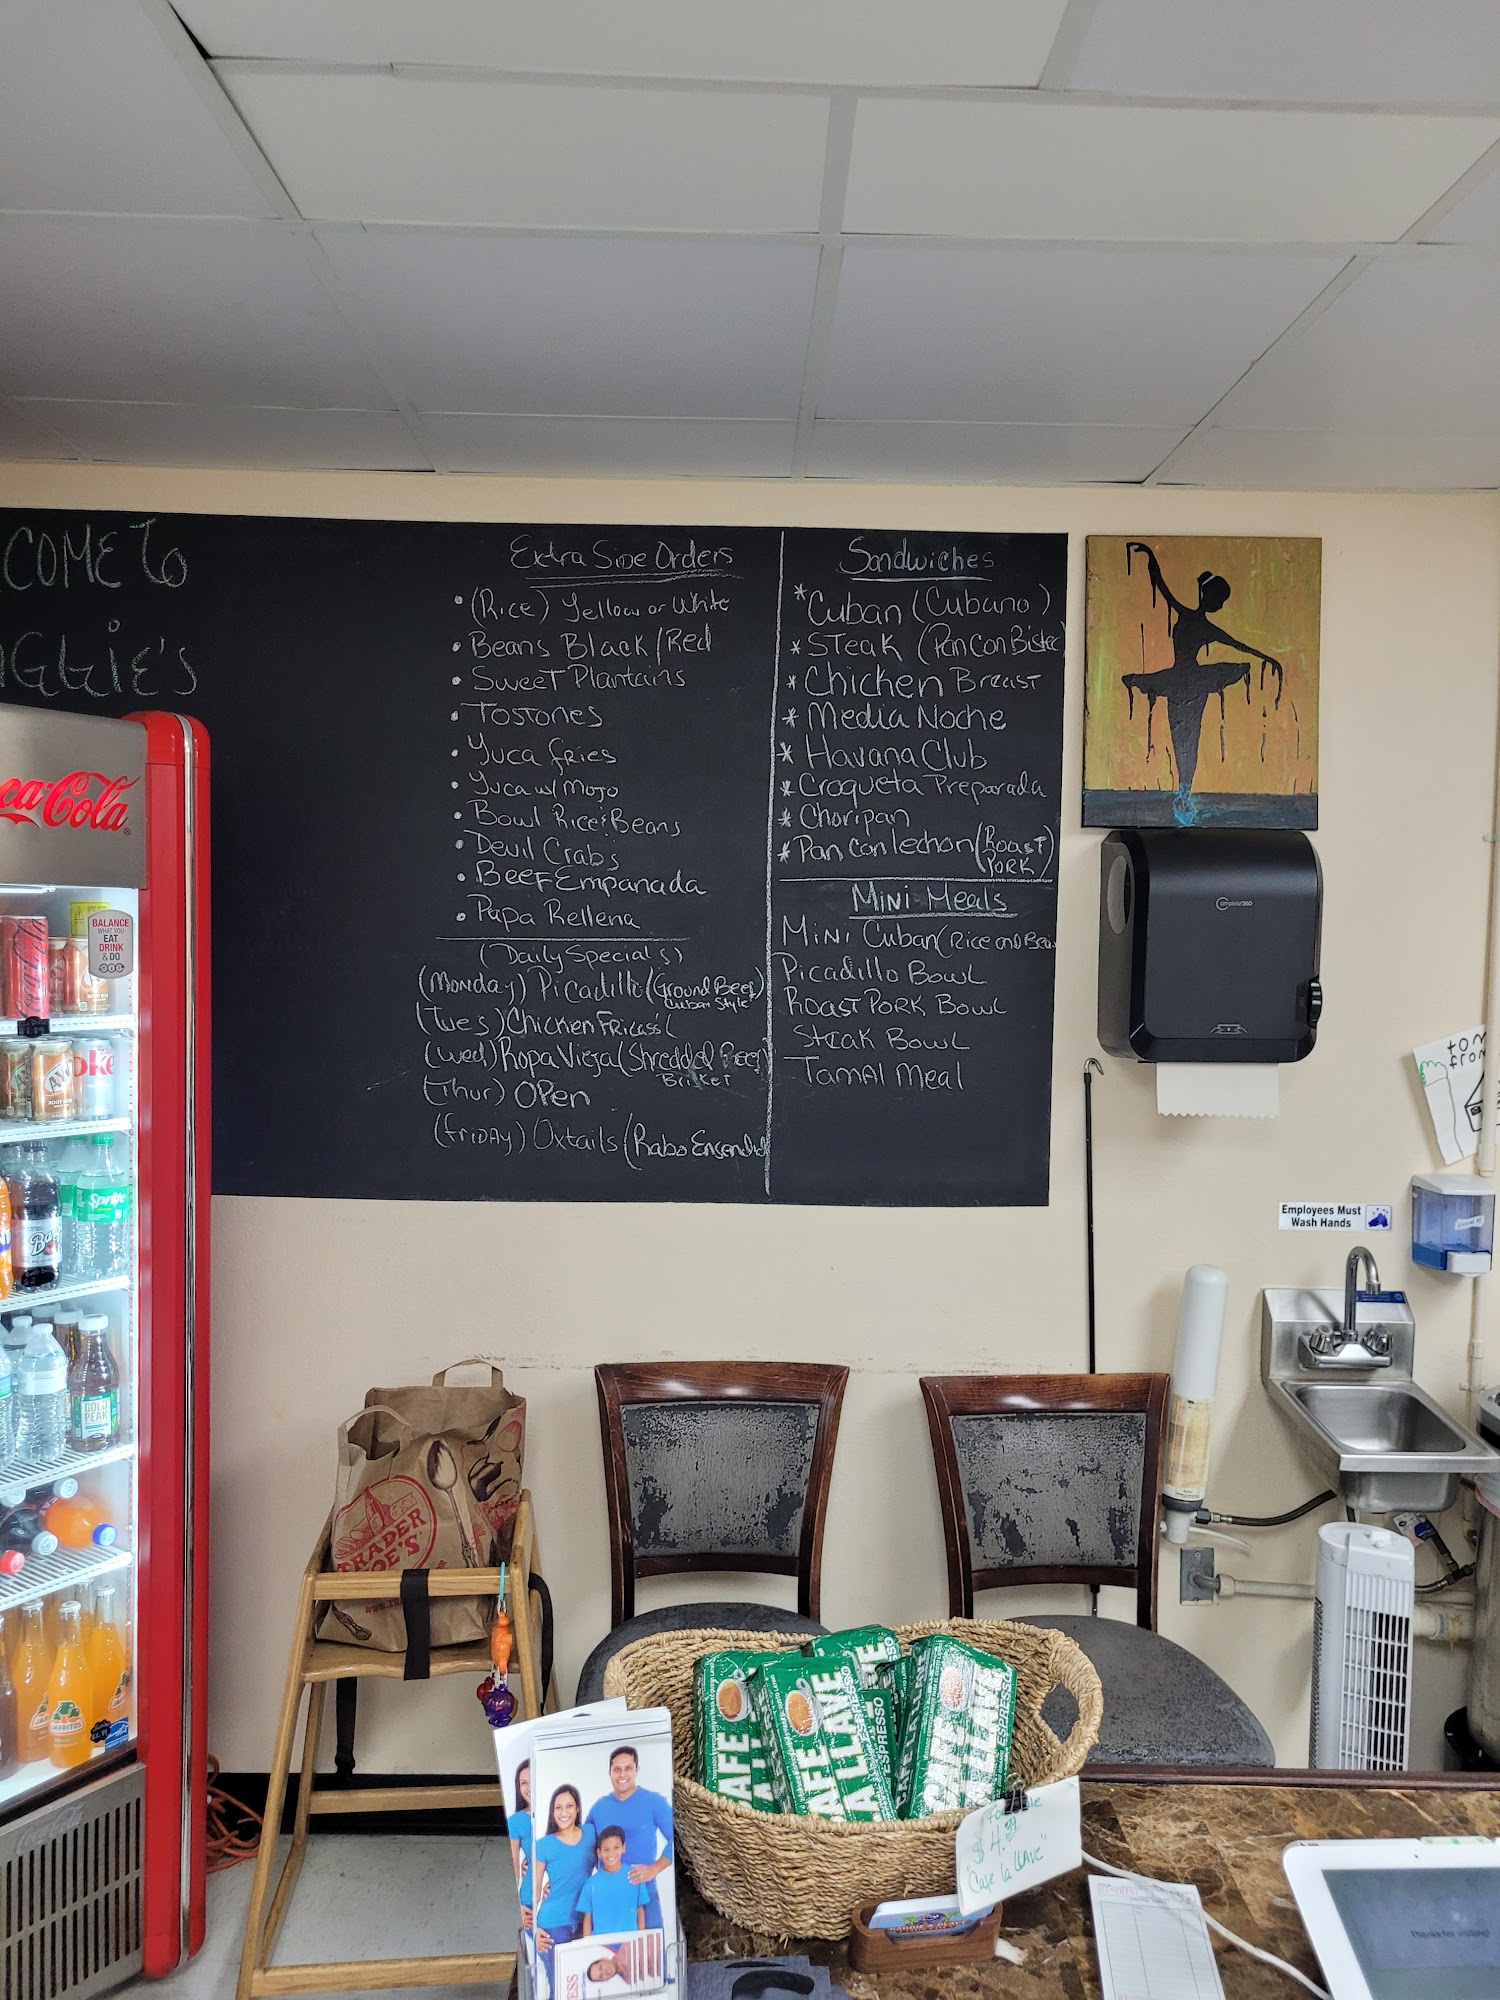 COME To
NGEliE's
Extra Side Orders
• (Rice) Yellow or White
• Beans Black/Red
• Sweet Plantains
• Tostones
• Yuca fries
• Yuca w/ Mojo
• Bowl Rice & Beans
• Devil Crabs
• Beef Empanada
• Papa Rellena
(Daily Specials)
(Monday) Picadillo (Ground Beef)
Cuban Style
(Tues) Chicken Fricassi
(Wed) Ropa Vieja (Shredded Beef)
Brisket
(Thur) Open
(Friday) Oxtails (Rabo Encendid
Sandwiches
* Cuban (Cubano)
* Steak (Pan Con Bistec
* Chicken Breast
* Media Noche
* Havana Club
* Croqueta Preparada
* Choripan
* Pan con lechon (Roast
Pork)
Mini Meals
Mini Cuban (Rice and Bea
Picadillo Bowl
Roast Pork Bowl
Steak Bowl
Tamal Meal
ca-Cola
BALANCE
WHAT YOU
EAT
DRINK
& DO
A&W
ROOT BEER
oke
Sprite
Ba
GOLD
PEAK
JARRITOS
TRADER
JOE'S
Employees Must
Wash Hands
tom
from
CAFE
LA LLAVE
ESPRESSO
CAFE
LA LLAVE
ESPRESSO
$4.39
"Cafe la llave"
ESS
Thanks for visiting!